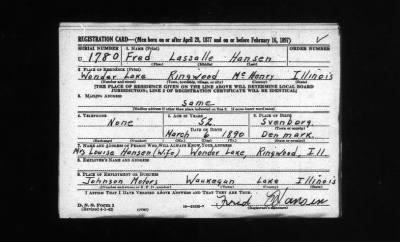 REGISTRATION CARD—(Men born on or after April 28, 1877 and on or before February 16, 1897)
SERIAL NUMBER 1. NAME (Print) ORDER NUMBER
U 1780 Fred Lassalle Hansen
(First) (Middle) (Last)
2. PLACE OF RESIDENCE (Print)
Wonder Lake Ringwood McHenry Illinois
(Number and street) (Town, township, village, or city) (County) (State)
[THE PLACE OF RESIDENCE GIVEN ON THE LINE ABOVE WILL DETERMINE LOCAL BOARD
JURISDICTION; LINE 2 OF REGISTRATION CERTIFICATE WILL BE IDENTICAL]
3. MAILING ADDRESS
Same
[Mailing address if other than place indicated on line 2. If same insert word same]
4. TELEPHONE 5. AGE IN YEARS 6. PLACE OF BIRTH
None 52 Svenborg
DATE OF BIRTH (Town or county)
March 6 1890 Denmark
(Exchange) (Number) (Mo.) (Day) (Yr.) (State or country)
7. NAME AND ADDRESS OF PERSON WHO WILL ALWAYS KNOW YOUR ADDRESS
Mrs Louise Hansen (Wife) Wonder Lake, Ringwood, Ill.
8. EMPLOYER'S NAME AND ADDRESS
9. PLACE OF EMPLOYMENT OR BUSINESS
Johnson Motors Waukegan Lake Illinois
(Number and street or R. F. D. number) (Town) (County) (State)
I AFFIRM THAT I HAVE VERIFIED ABOVE ANSWERS AND THAT THEY ARE TRUE.
D. S. S. Form 1
(Revised 4-1-42) (over) Fred Hansen
(Registrant's signature)